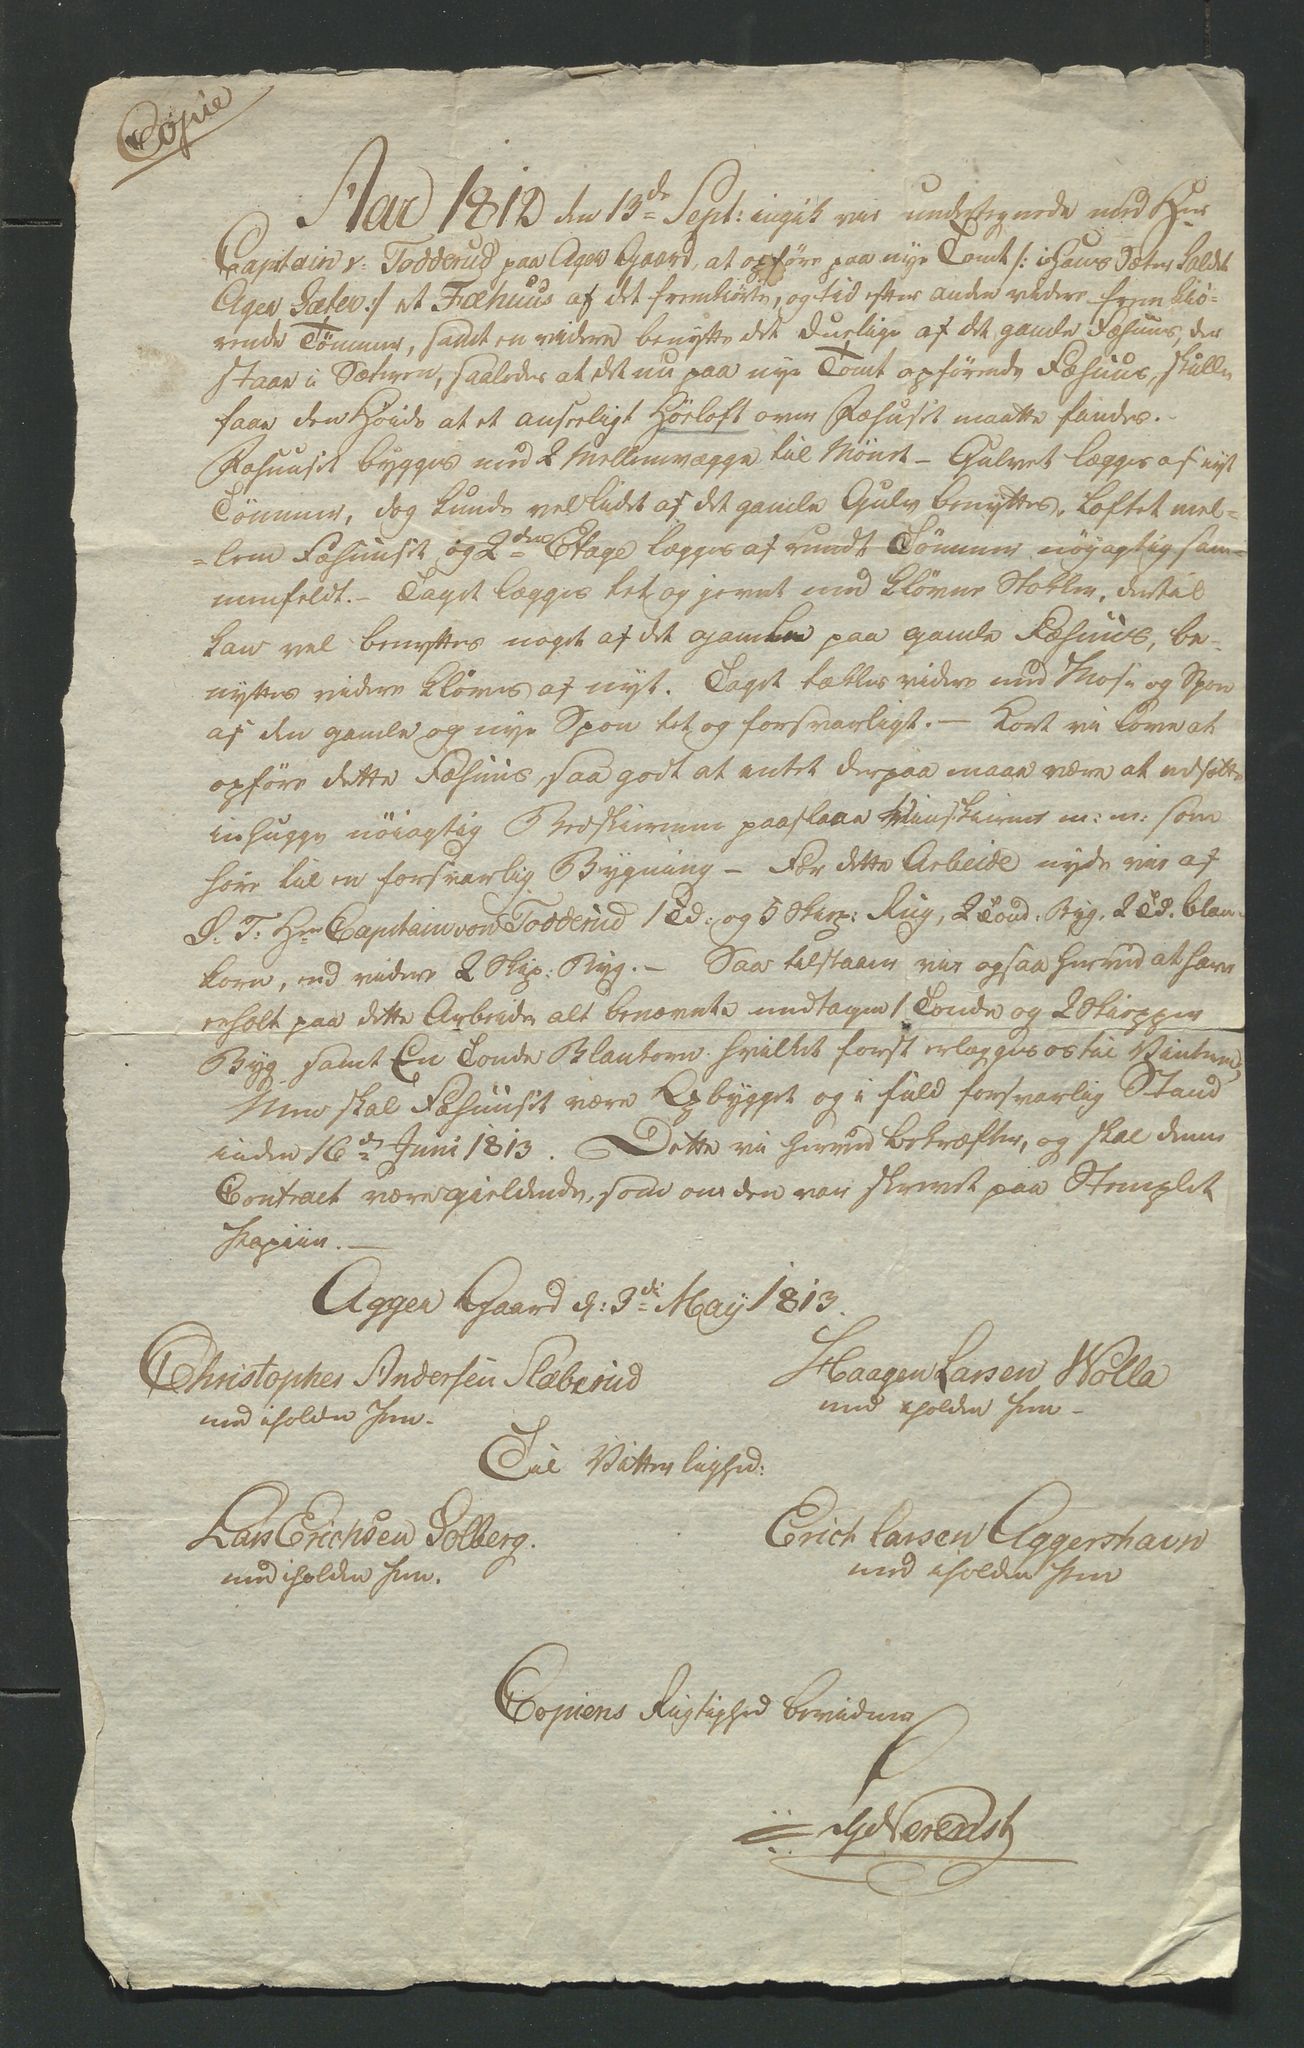 Copie
Aar 1812 den 13de Sept: ingik vii undertegnede med Her
Captain v: Todderud paa Ager Gaard, at opføre paa nye Tomt /: i Hans Sæter kaldet
Ager Sæter :/ et Fæhuus af det fremkiørte, og tid efter anden videre frem kiø-
rende Tømmer, samt en videre benytte det duelige af det gamle Fæhuus, der
staar i Sæteren, saaledes at det nu paa nye Tomt opførende Fæhuus, skulle
faae den Høide at et anseeligt Høeloft over Fæhuset maatte findes. -
Fæhuuset bygges med 2 Mellemvægge til Mønet - Gulvet lægges af nyt
Tømmer, dog kunde vel lidet af det gamle Gulv benyttes, Loftet mel-
-lem Fæhuuset og 2den Etage lægges af rundt Tømmer nøyagtig sam-
menfeldt. - Taget lægges tet og jevnt med kløvne Stokker, dertil
kan vel benyttes noget af det gamle paa gamle Fæhuus, be-
nyttes videre kløves af nyt. Taget tækkes videre med Mose og Spon
af den gamle og nye Spon tet og forsvarligt. - Kort vi love at
opføre dette Fæhuus saa godt at intet derpaa maae være at udsætte
inhugge nøiagtig paaslaae Vinskierer m: m: som
høre til en forsvarlig Bygning - For dette Arbeide nyde vii af
S. T. Hr Captain von Todderud 1 Td: og 5 Skiep: Rug, 2 Tønd. Byg, 2 Td. blan-
korn, end videre 2 Skip: Byg. - Saa tilstaaer vii ogsaa herved at have
erholt paa dette Arbeide alt benævnte undtagen 1 Tønde og 2 Skiepper
Byg samt En Tønde Blankorn hvilket først erlægges os til Vinteren,
Men skal Fæhuuset være Opbygget og i fuld forsvarlig Stand
inden 16de Juni 1813. Dette vi herved bekræfter, og skal denne
Contract være gieldende, som om den var skrevet paa Stemplet
Papiir. -
Agger Gaard d: 3de May 1813.
Christopher Andersen Slæberud
med iholden Pen -
Haagen Larsen Wolla
med iholden Pen -
Til Vitterlighed:
Lars Erichsen Solberg.
med iholden Pen.
Erich Larsen Aggershavn
med iholden Pen
Copiens Rigtighed bevidner